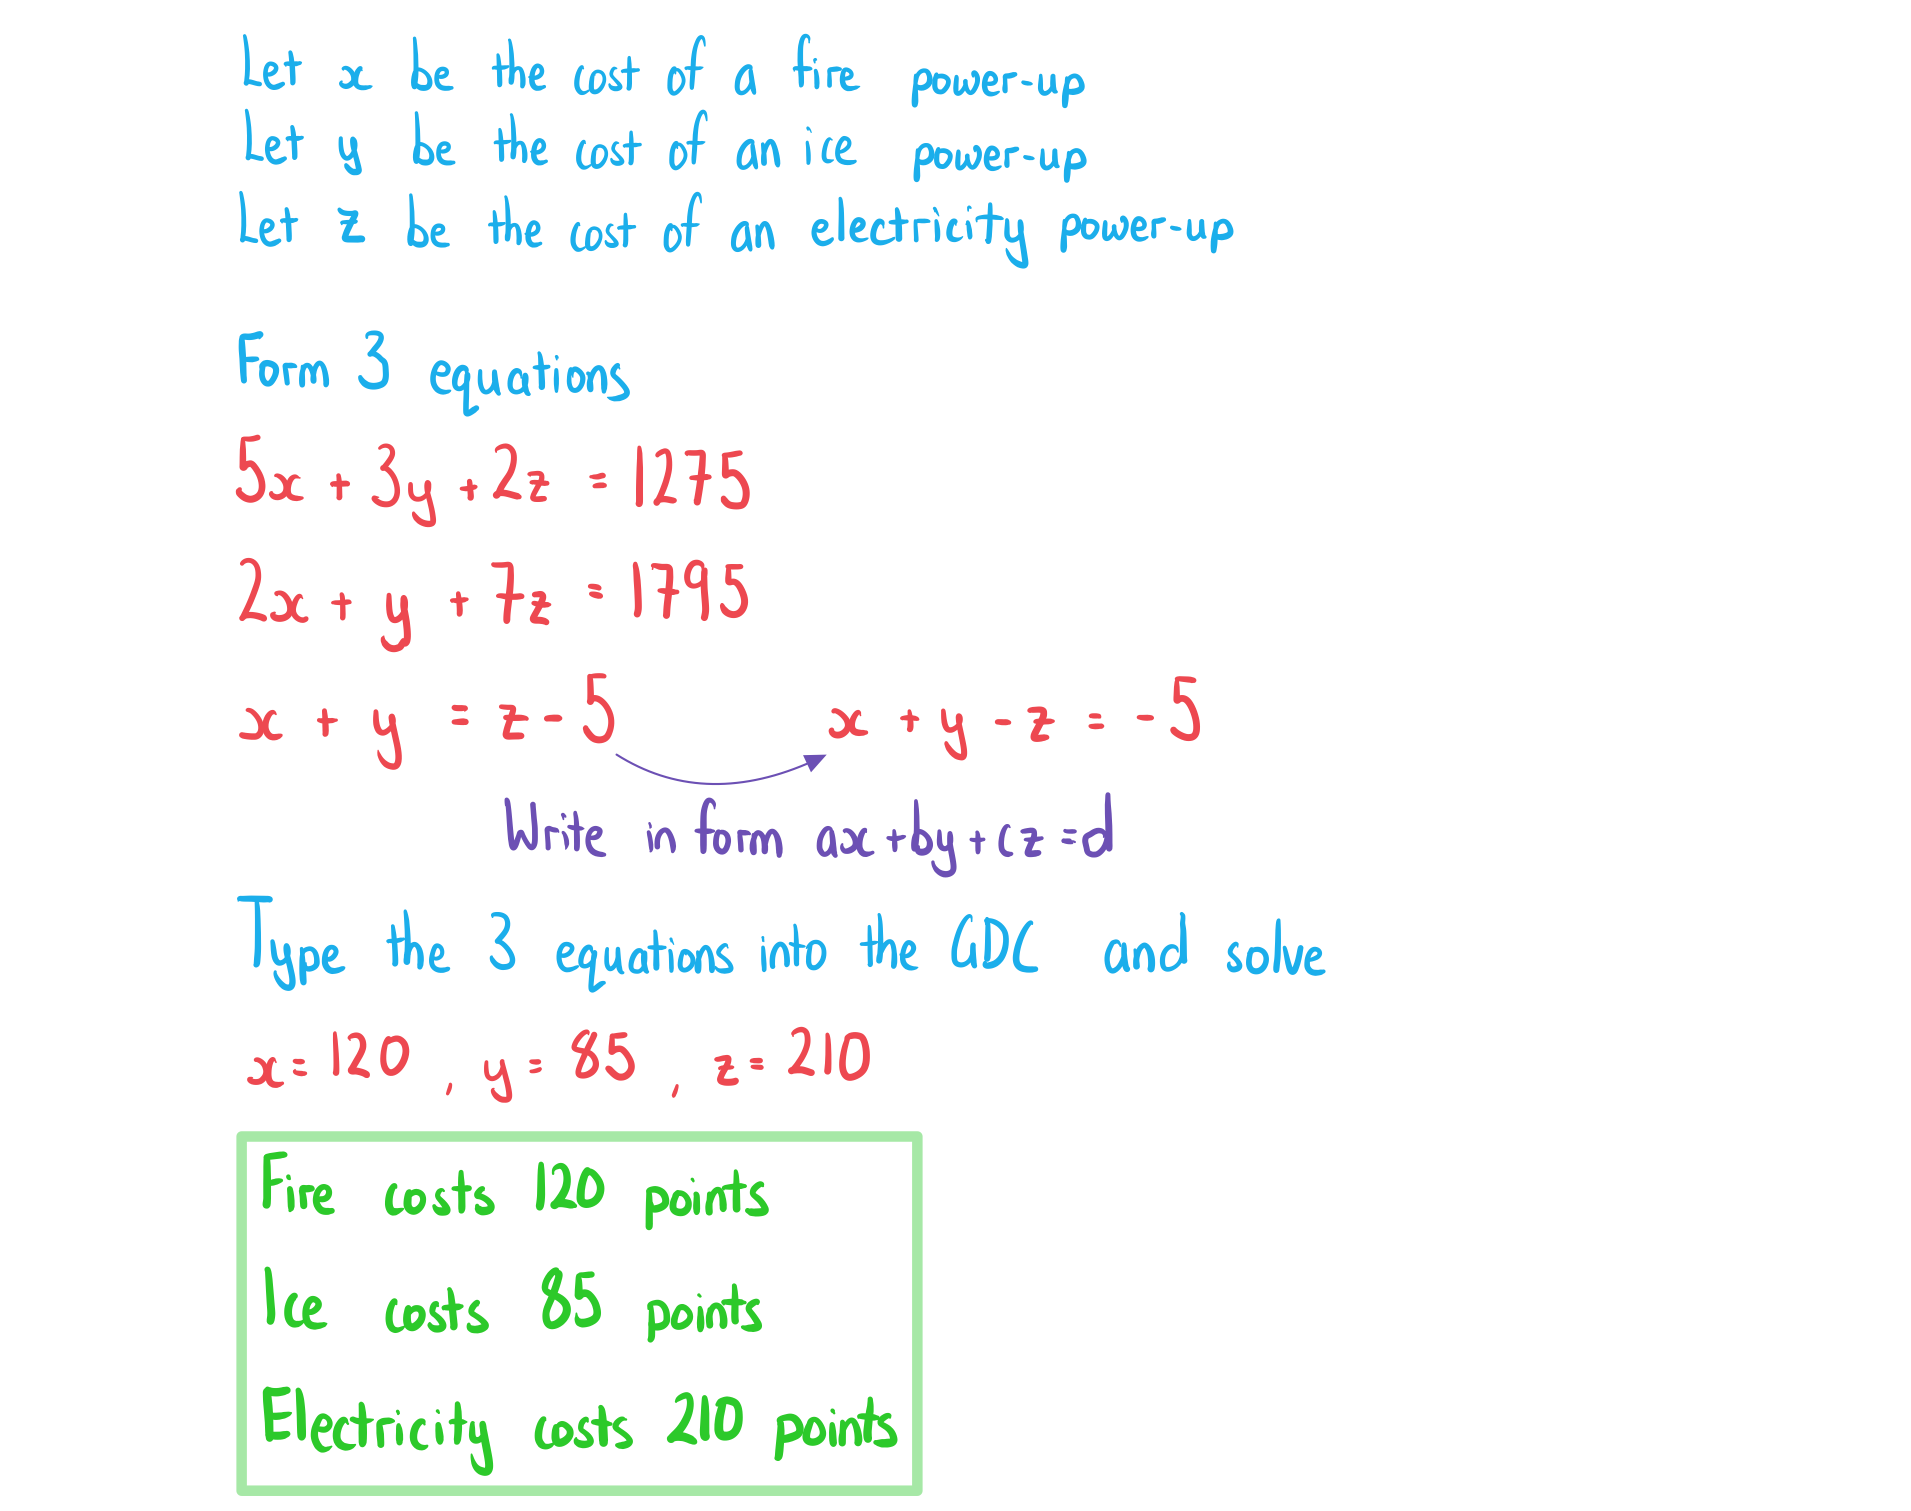 Let x be the cost of a fire power-up
Let y be the cost of an ice power-up
Let z be the cost of an electricity power-up
Form 3 equations
5x + 3y + 2z = 1275
2x + y + 7z = 1795
x + y = z - 5 x + y - z = -5
Write in form ax + by + cz = d
Type the 3 equations into the GDC and solve
x = 120 , y = 85 , z = 210
Fire costs 120 points
Ice costs 85 points
Electricity costs 210 points